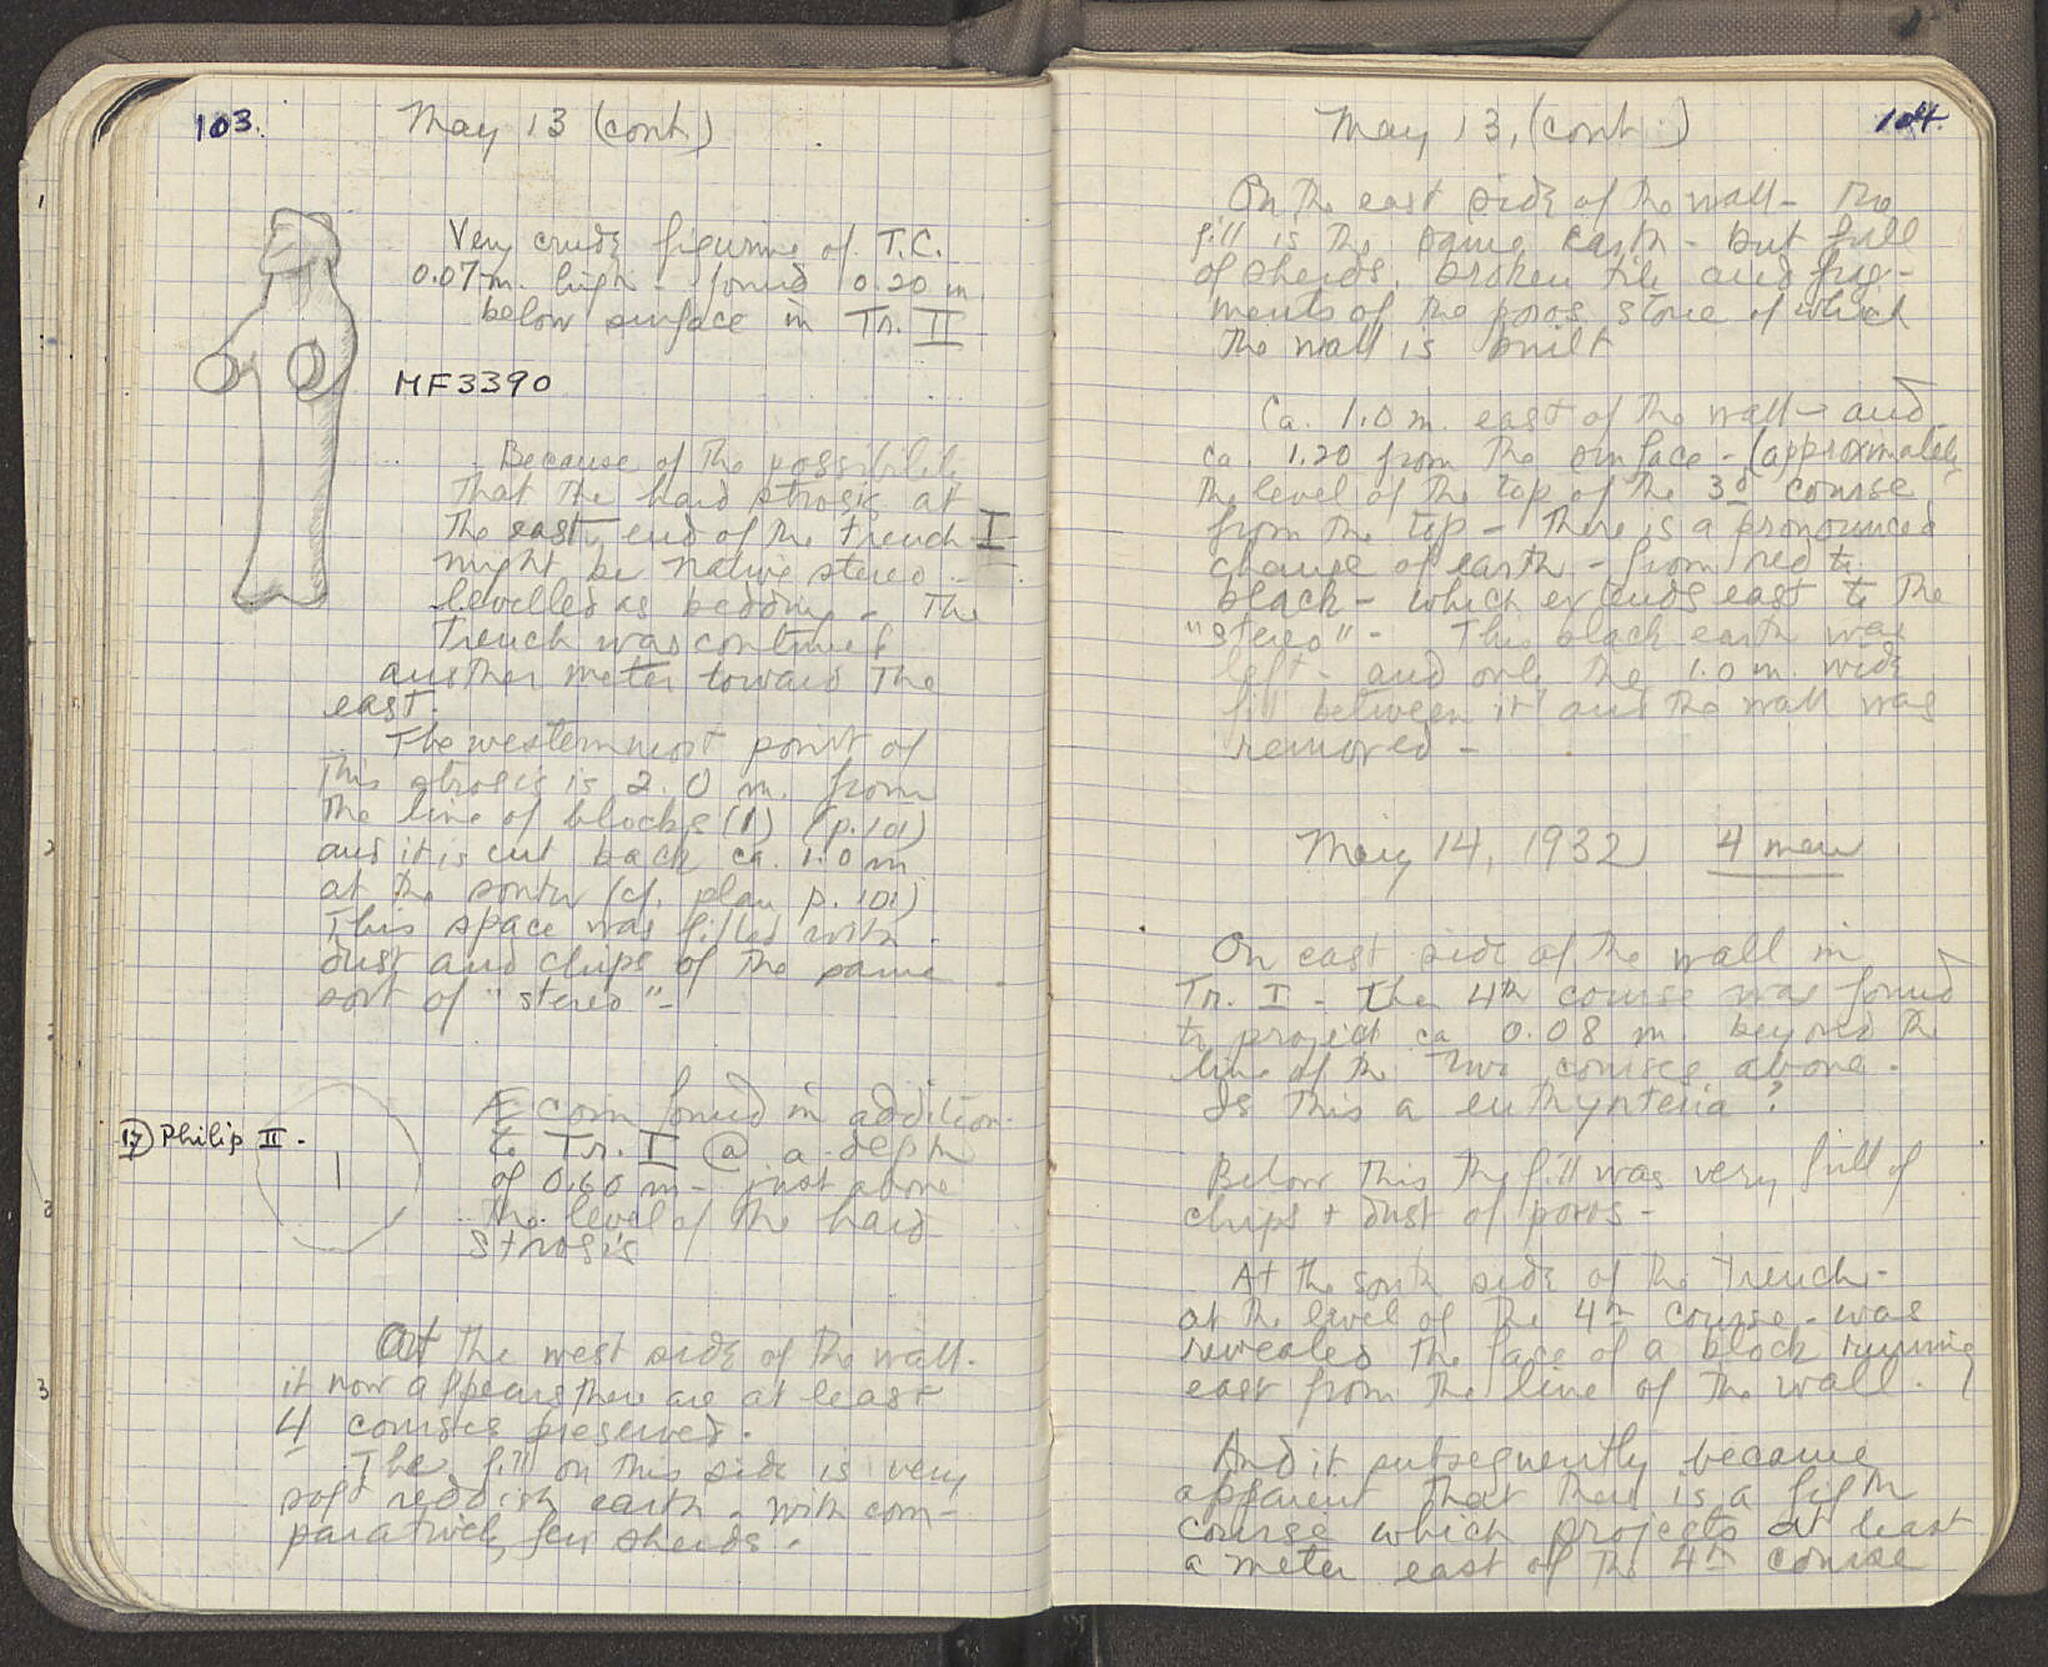 103.
May 13 (cont)
Very crude figurine of T.C.
0.07 m. high - found 0.20 m
below surface in Tr. II
MF3390
Because of the possibility
that the hard strosis at
the east end of the trench I
might be native stereo -
levelled as bedding - the
trench was continued
another meter toward the
east.
The westernmost point of
this strosis is 2.0 m. from
the line of blocks (1) (p. 101)
and it is cut back ca. 1.0 m
at the south (cf. plan p. 101)
This space was filled with
dust and chips of the same
sort of "stereo" -
17 Philip II.
Æ coin found in addition
to Tr. I @ a depth
of 0.60 m - just above
the level of the hard
strosis
At the west side of the wall.
it now appears there are at least
4 courses preserved.
The fill on this side is very
soft reddish earth - with com-
paratively few sherds.
104.
May 13, (cont.)
On the east side of the wall - the
fill is the same earth - but full
of sherds, broken tile and frag-
ments of the poros stone of which
the wall is built
Ca. 1.0 m. east of the wall - and
ca. 1.20 from the surface - (approximately
the level of the top of the 3d course
from the top - there is a pronounced
change of earth - from red to
black - which extends east to the
"stereo" - This black earth was
left - and only the 1.0 m. wide
fill between it and the wall was
removed -
May 14, 1932 4 men
On east side of the wall in
Tr. I - the 4th course was found
to project ca 0.08 m. beyond the
line of the two courses above.
Is this a euthynteria?
Below this the fill was very full of
chips + dust of poros -
At the south side of the trench -
at the level of the 4th course - was
revealed the face of a block running
east from the line of the wall.
And it subsequently became
apparent that there is a fifth
course which projects at least
a meter east of the 4th course